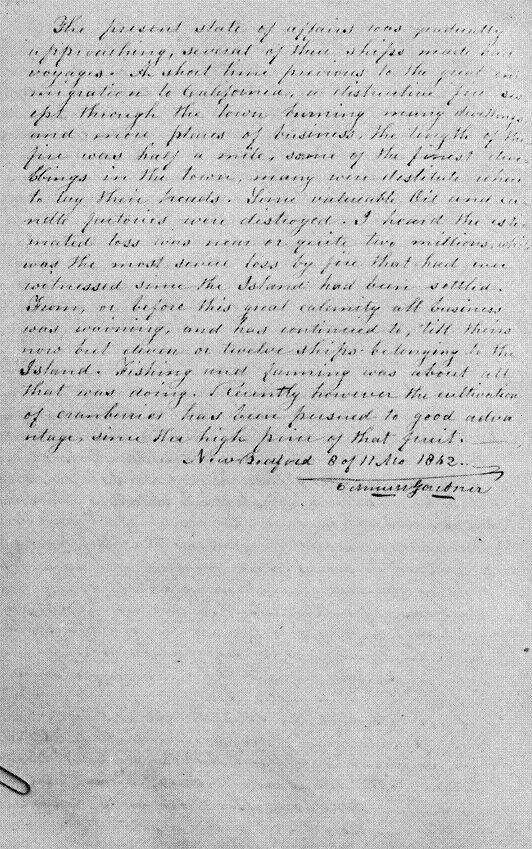 The present state of affairs was gradually
approaching, several of their ships made
voyages. A short time previous to the great em
migration to California, a distructive fire sw
ept through the town burning many dwellings
and more places of business, the length of the
fire was half a mile, some of the finest dwe
llings in the town, many were destitute where
to lay their heads. Some valueable Oil and ca
ndle factories were destroyed. I heard the esti
mated loss was near or quite two millions, which
was the most severe loss by fire that had ever
witnessed since the Island had been settled.
From, or before this great calamity all business
was waining, and has continued to, till theirs
now but eleven or twelve ships belonging to the
Island. Fishing and farming was about all
that was doing. Recently however the cultivation
of cranberries has been persued to good adva
ntage, since the high price of that fruit.
New Bedford 8 of 11 Mo 1862.
Gardner